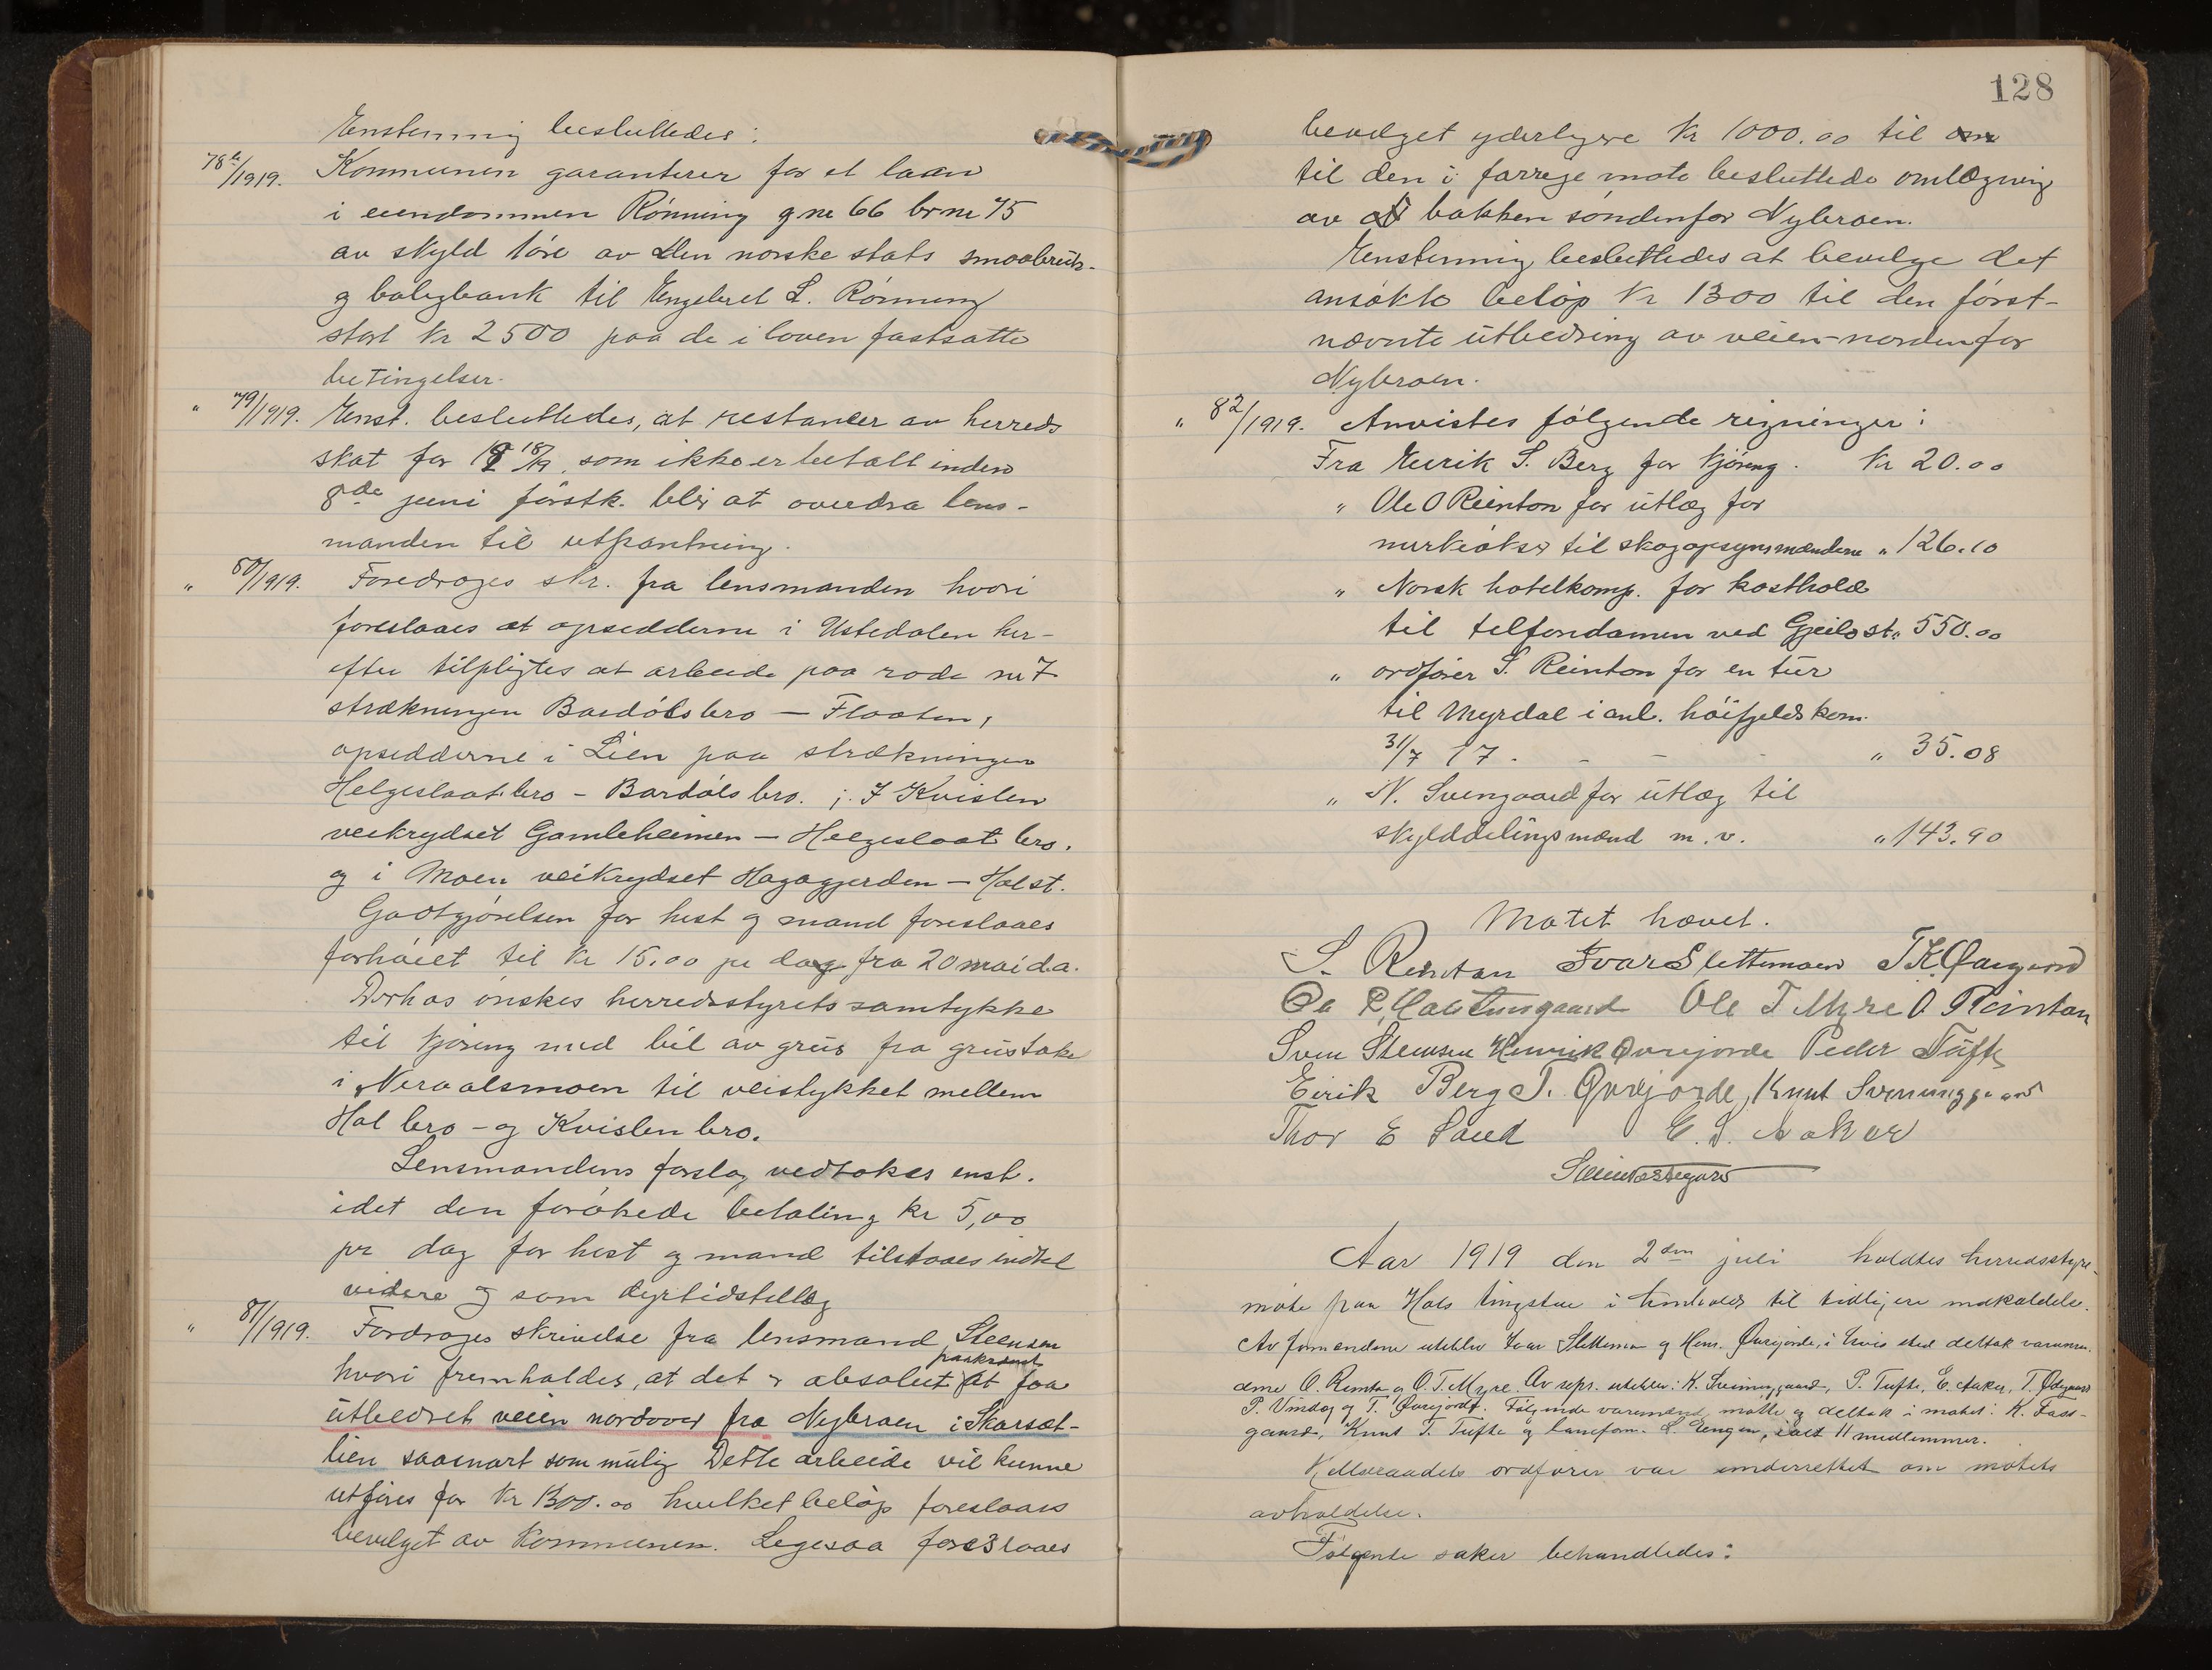 Enstemmig besluttedes:
78b/1919. Kommunen garanterer for et laan
i eiendommen Rönning gnr 66 brnr 75
av skyld 1 öre av Den norske stats smaabruk-
og boligbank til Engebret L. Rönning
stort kr 2500 paa de i loven fastsatte
betingelser.
" 79/1919. Enst. besluttedes, at restancer av herreds
skat for 18/19, som ikke er betalt inden
8de juni förstk. blir at overdra lens-
manden til utpantning.
" 80/1919. Foredroges skr. fra lensmanden hvori
foreslaaes at opsidderne i Ustedalen her-
efter tilpligtes at arbeide paa rode nr 7
strækningen Bardölsbro – Flaaten,
opsidderne i Lien paa strækningen
Helgeslaatbro – Bardöls bro. ; I Kvislen
veikrydset Gamleheimen – Helgeslaat bro.
og i Moen veikrydset Hagagjerden – Hol st.
Godtgjörelsen for hest og mand foreslaaes
forhöiet til kr 15.00 pr dag fra 20 mai d.a.
Derhos önskes herredsstyrets samtykke
til kjöring med bil av grus fra grustake
i Neraalsmoen til veistykket mellem
Hol bro – og Kvislen bro.
Lensmandens forslag vedtokes enst.
idet den forökede betaling kr 5,00
pr dag for hest og mand tilstaaes indtil
videre og som dyrtidstillæg
" 81/1919. Fordroges skrivelse fra lensmand Steensen
paakrævet
hvori fremholdes, at det er absolut at faa
utbedret veien nordover fra Nybroen i Skarsæt-
lien saasnart som mulig Dette arbeide vil kunne
utföres for kr 1300.00 hvilket belöp foreslaaes
bevilget av kommunen. Legesaa foreslaaes
128
bevilget yderligere kr 1000.00 til om
til den i forrige möte besluttede omlægning
av bakken söndenfor Nybroen.
Enstemmig besluttedes at bevilge det
ansökte belöp kr 1300 til den först-
nævnte utbedring av veien nordenfor
Nybroen.
" 82/1919. Anvistes fölgende regninger:
Fra Eirik S. Berg for kjöring. kr 20.00
" Ole O Reinton for utlæg for
merkeökser til skogopsynsmændene " 126.10
" Norsk hotelkomp. for kosthold
til telfondamen ved Gjeilo st. " 550.00
" ordförer S. Reinton for en tur
til Myrdal i anl. höifjeldskom.
31/7 17. - - - " 35.08
" N. Svengaard for utlæg til
skylddelingsmænd m.v. " 143.90
Motet hævet.
S. Reinton Ivar Slettemoen T K Øargard
Ole T Myre O Reinton
Sven Steensen Henrik Øvrejorde Peder Tufte
Eirik Berg T. Øvrejorde, Knut Svenunggaard
Thor E Sand E. S. Aaker
Aar 1919 den 2den juli holdtes herredsstyre-
möte paa Hols tingstue i henhold til tidligere indkaldelse.
Av formændene uteblev Ivar Slettemoen og Henr. Øvrejorde, i hvis sted deltok varamæn-
dene O. Reinton og O. T. Myre. Av repr. uteblev: K. Svenunggaard, P. Tufte, E. Aaker, T. Ødegaard
P. Villand og T. Øvrejorde. Fölgende varamænd mötte og deltok i mötet: K. Fass-
gaard, Knut T. Tufte og L. Lengen, ialt 11 medlemmer.
ordförer var underrettet om mötets
avholdelse.
Fölgende saker behandledes: